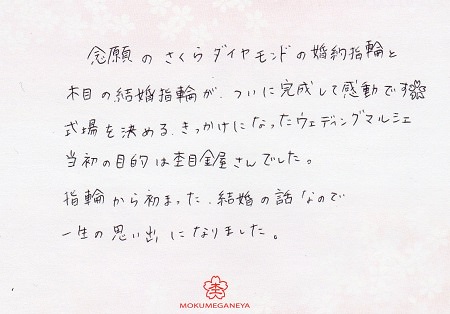 念願の さくら ダイヤモンドの婚約指輪と
木目の結婚指輪が、ついに完成して感動です🌸
式場を決める、きっかけになったウェディングマルシェ
当初の目的は杢目金屋さんでした。
指輪から初まった、結婚の話なので
一生の思い出になりました。
杢
MOKUMEGANEYA